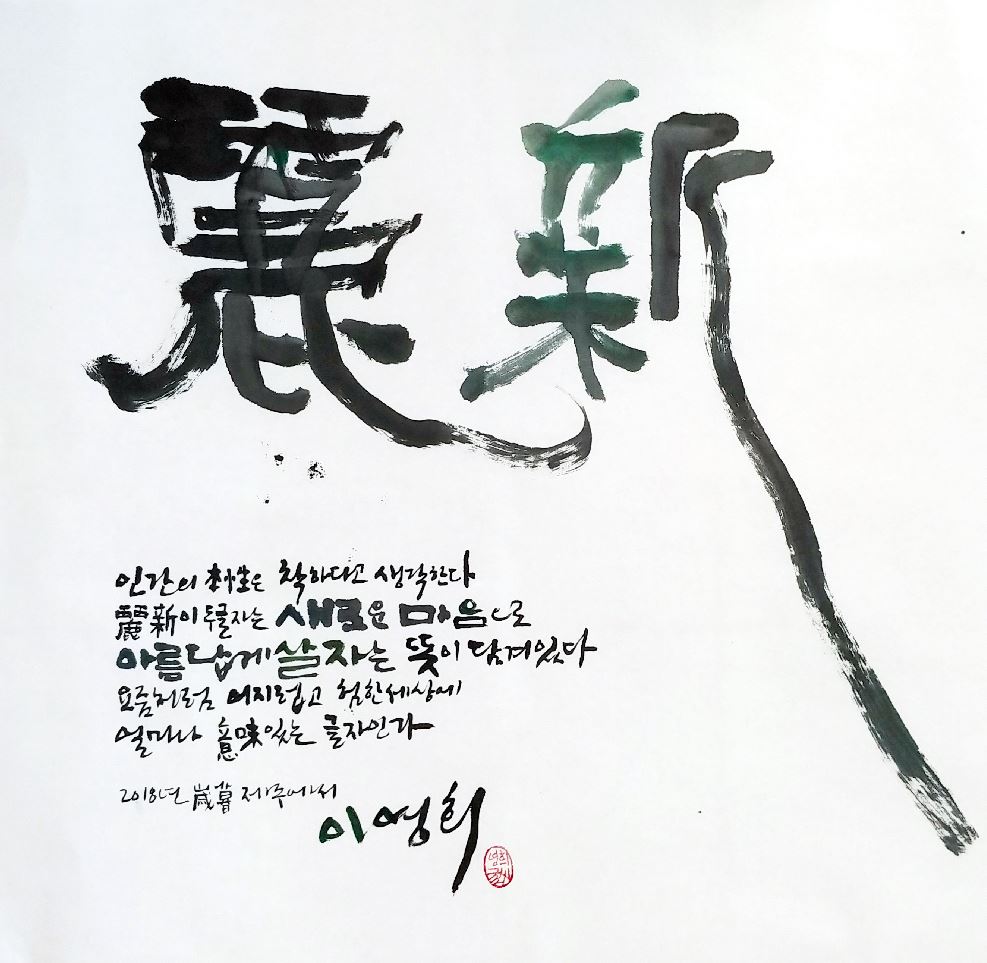 麗新
인간의 本性은 착하다고 생각한다
麗新이 두글자는 새로운 마음으로
아름답게 살자는 뜻이 담겨있다
요즘처럼 어지럽고 험한세상에
얼마나 意味있는 글자인가
2018년 歲暮 제주에서
이영희